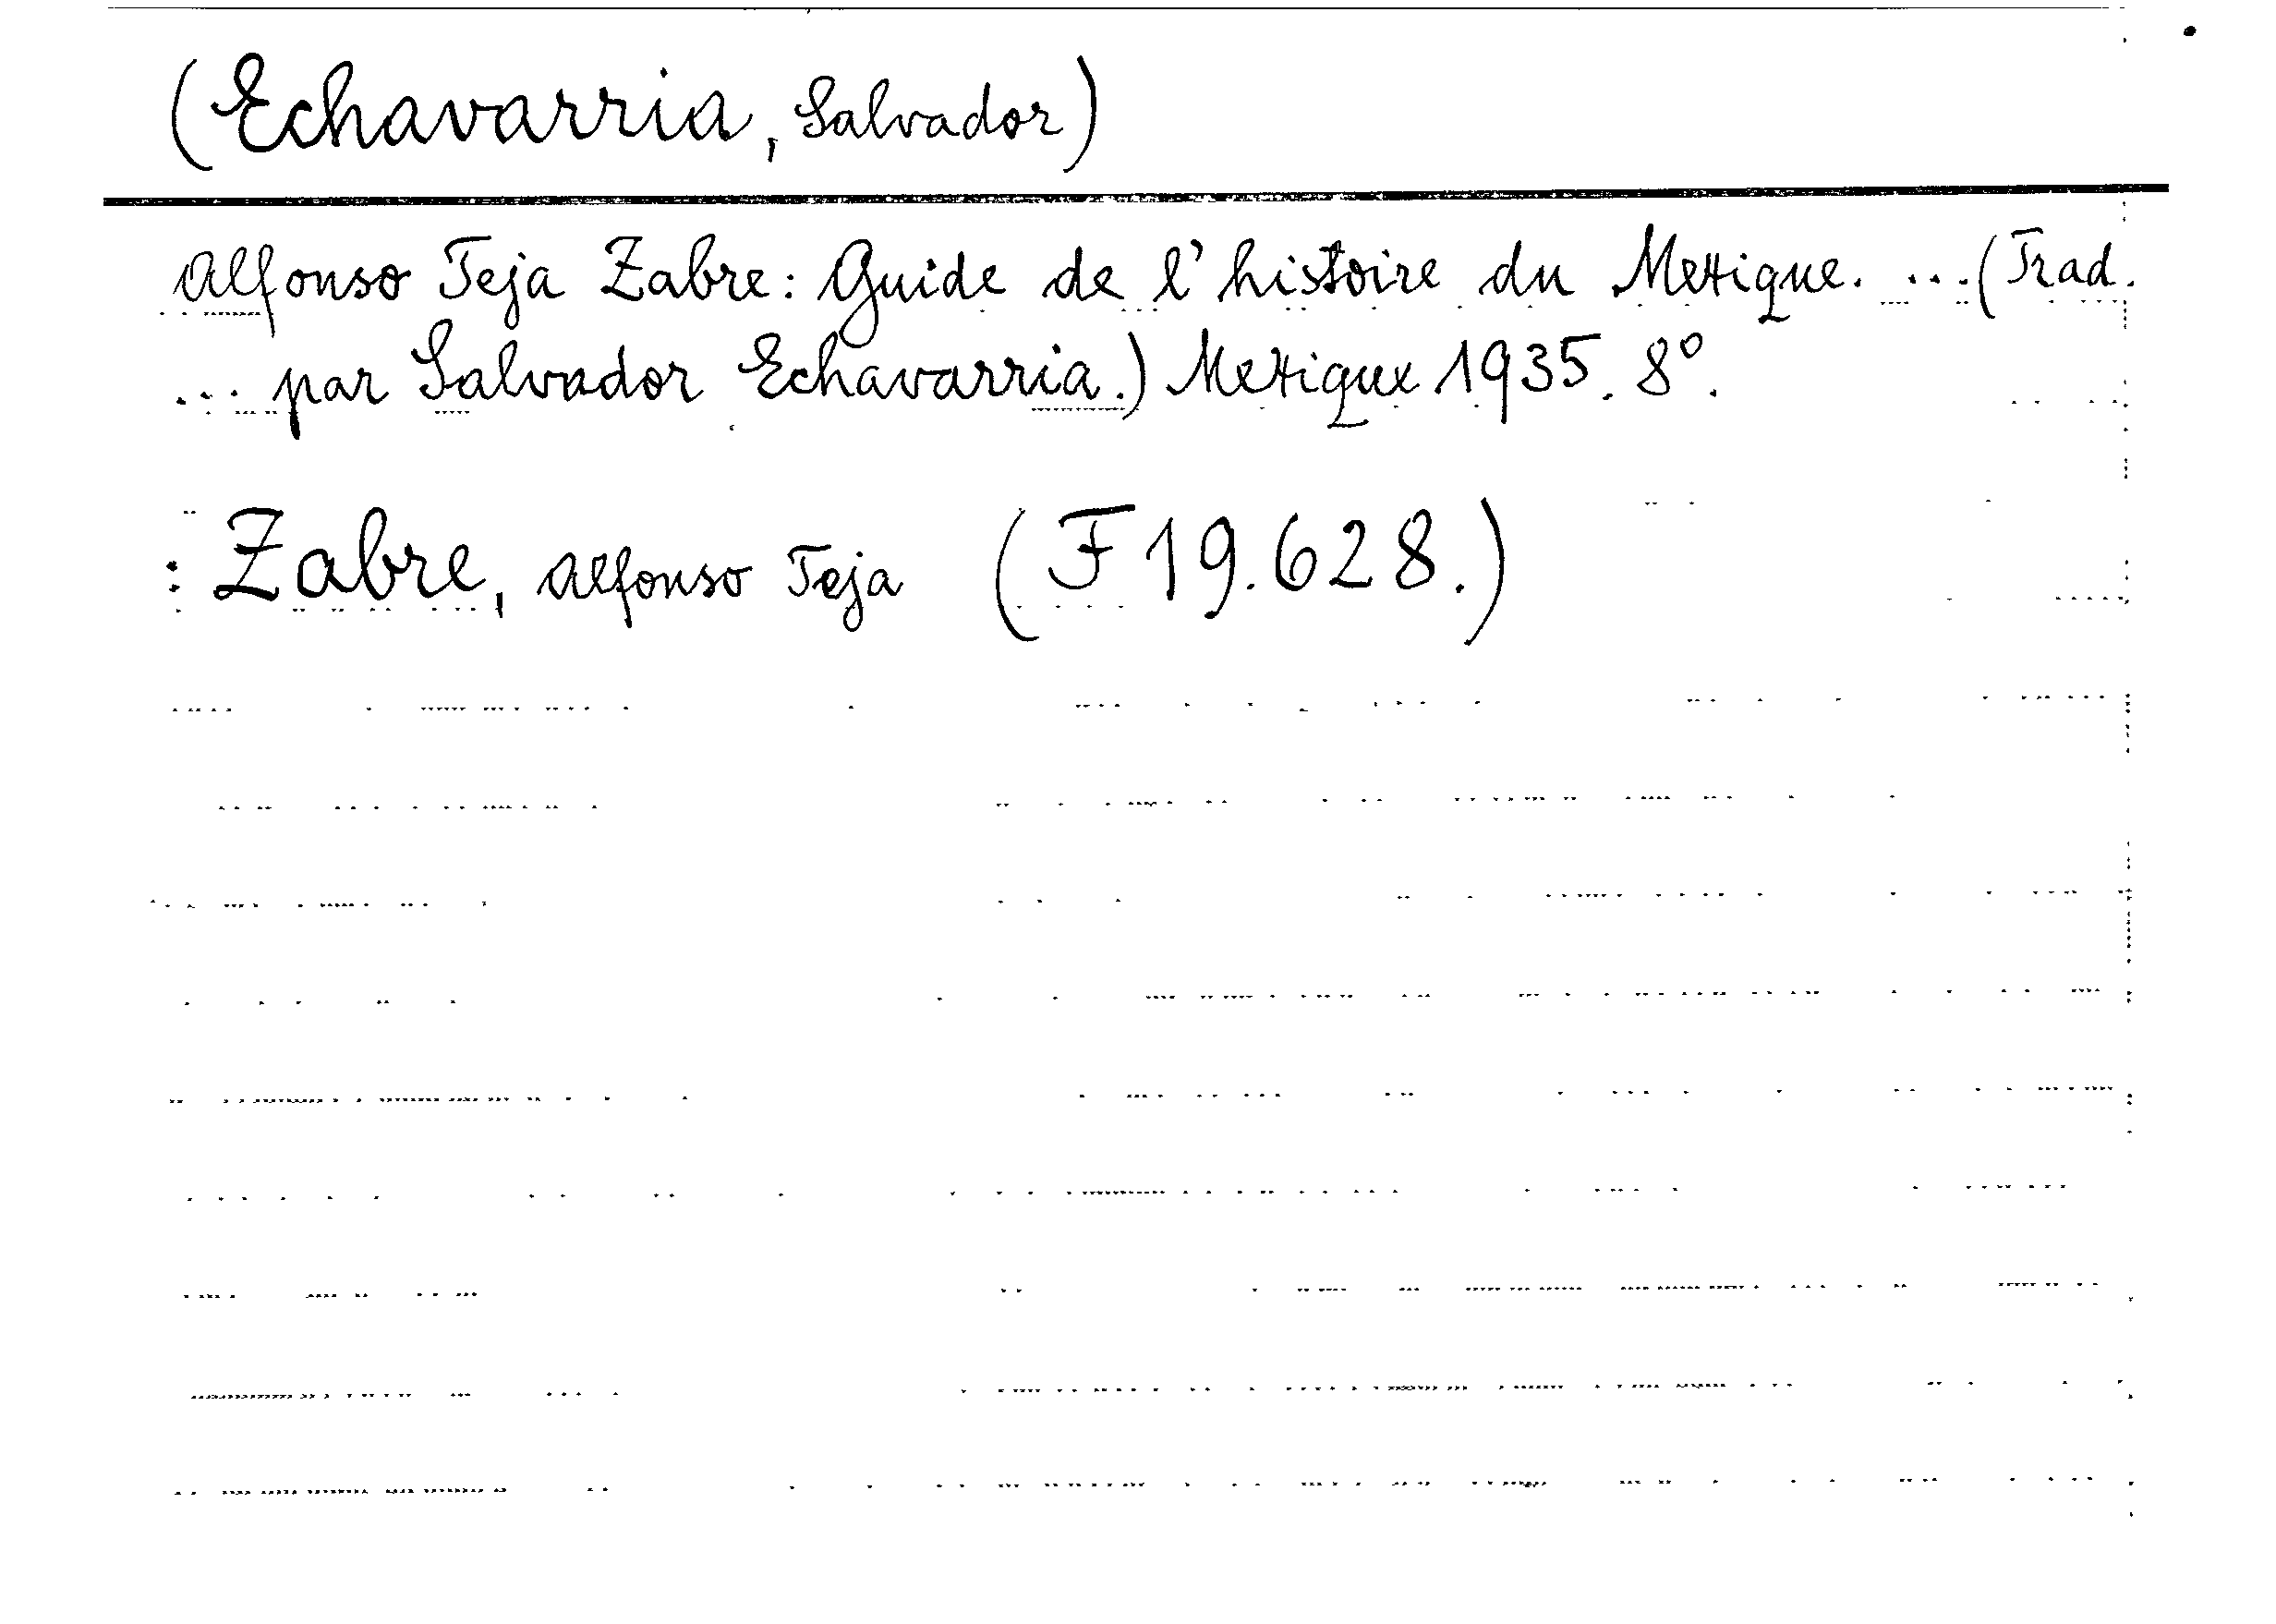 (Echavarria, Salvador)
Alfonso Teja Zabre: Guide de l'histoire du Mexique. ...(Trad.
... par Salvador Echavarria.) Mexique 1935. 8°.
: Zabre, Alfonso Teja (F 19.628.)